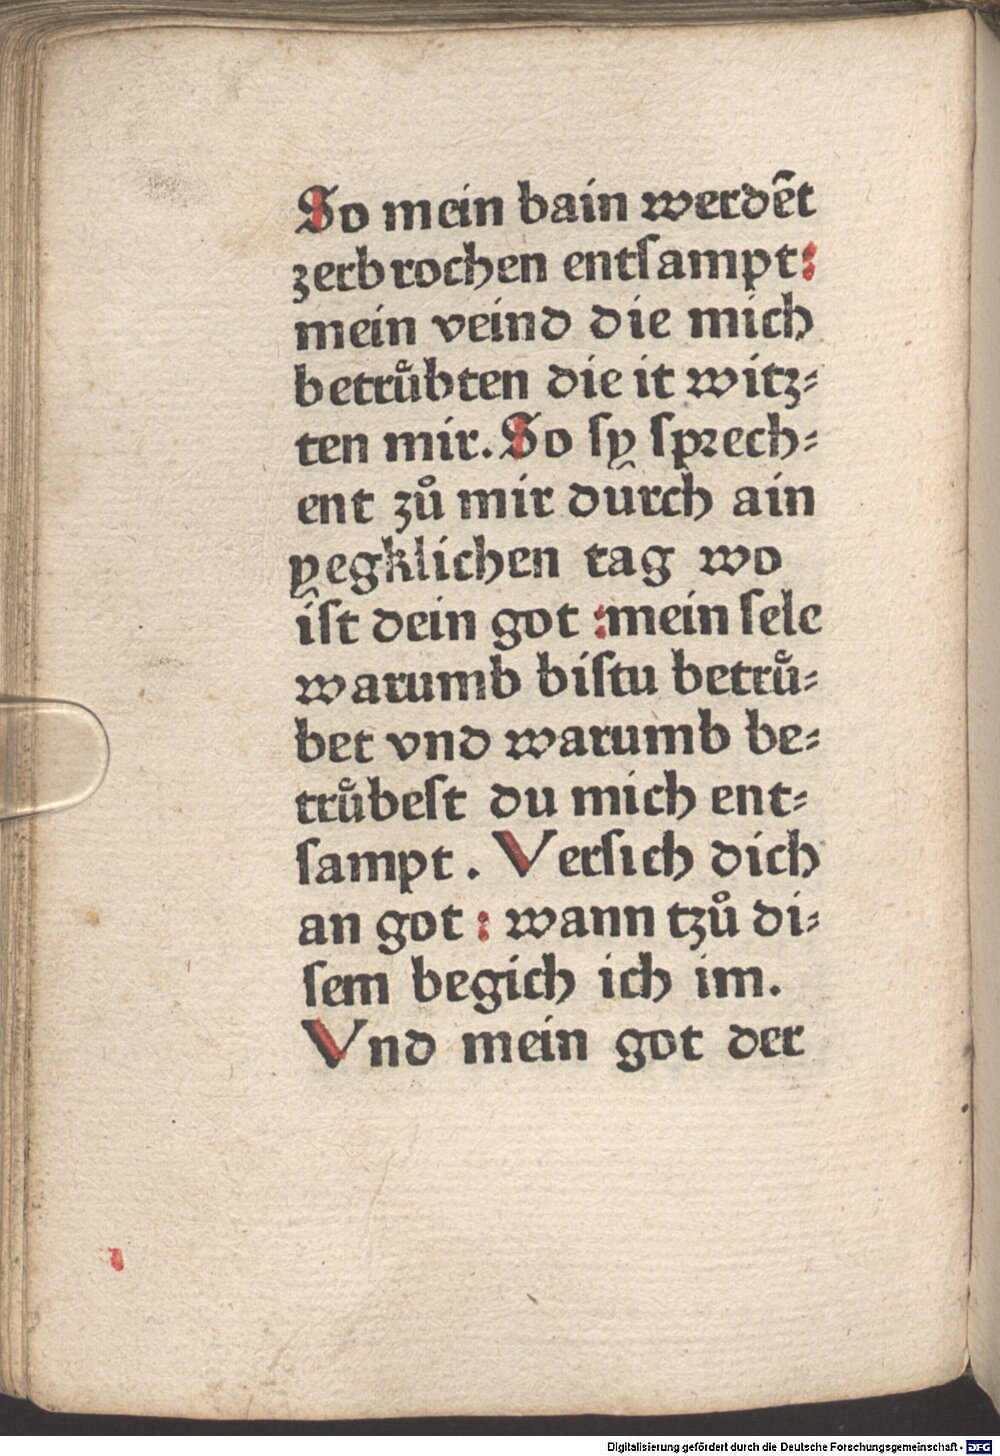 So mein bain werdēt
zerbrochen entſampt:
mein veind die mich
betruͤbten die it witz⸗
ten mir. So ſy ſprech⸗
ent zů mir durch ain
yegklichen tag wo
iſt dein got :mein ſele
warumb biſtu betruͤ⸗
bet vnd warumb be⸗
truͤbeſt du mich ent⸗
ſampt. Verſich dich
an got : wann tzů di⸗
ſem begich ich im.
Vnd mein got der
Digitalisierung gefördert durch die Deutsche Forschungsgemeinschaft - DFG